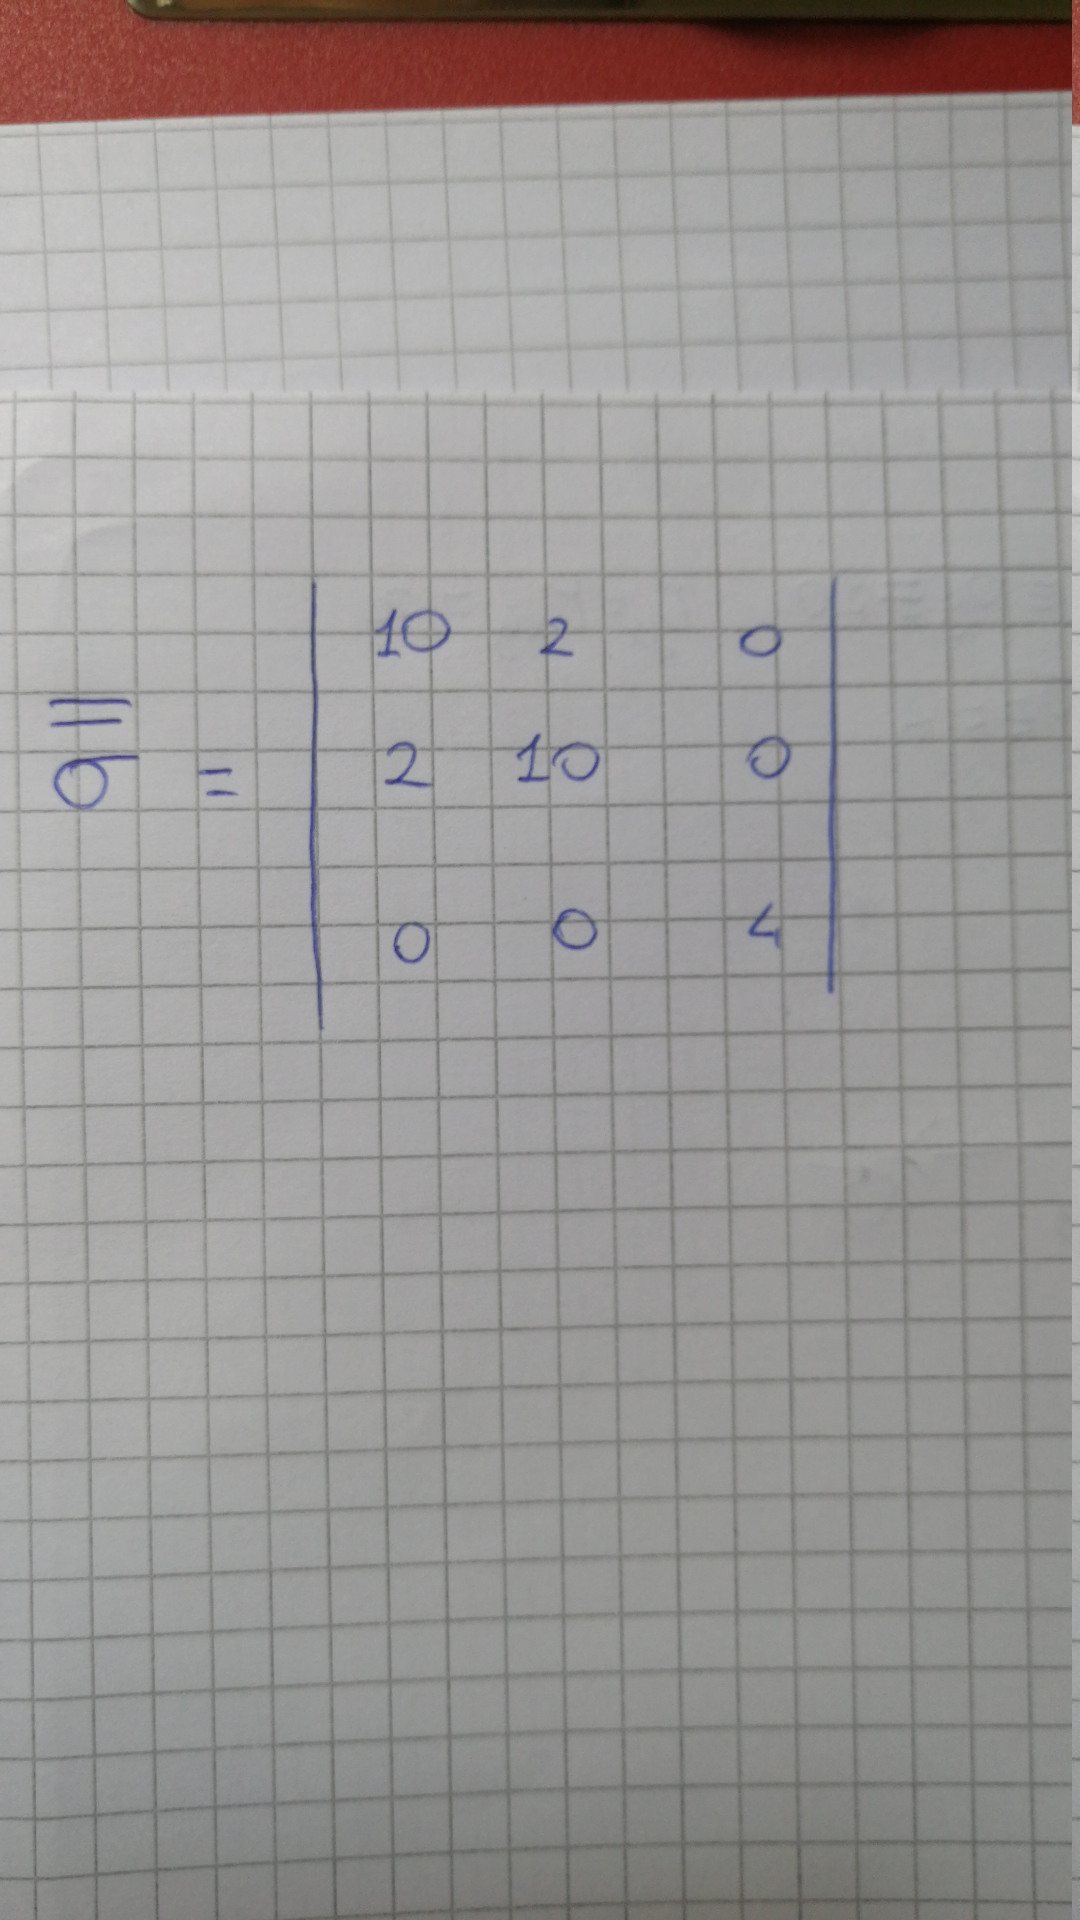 σ̿ = | 10 2 0 |
| 2 10 0 |
| 0 0 4 |